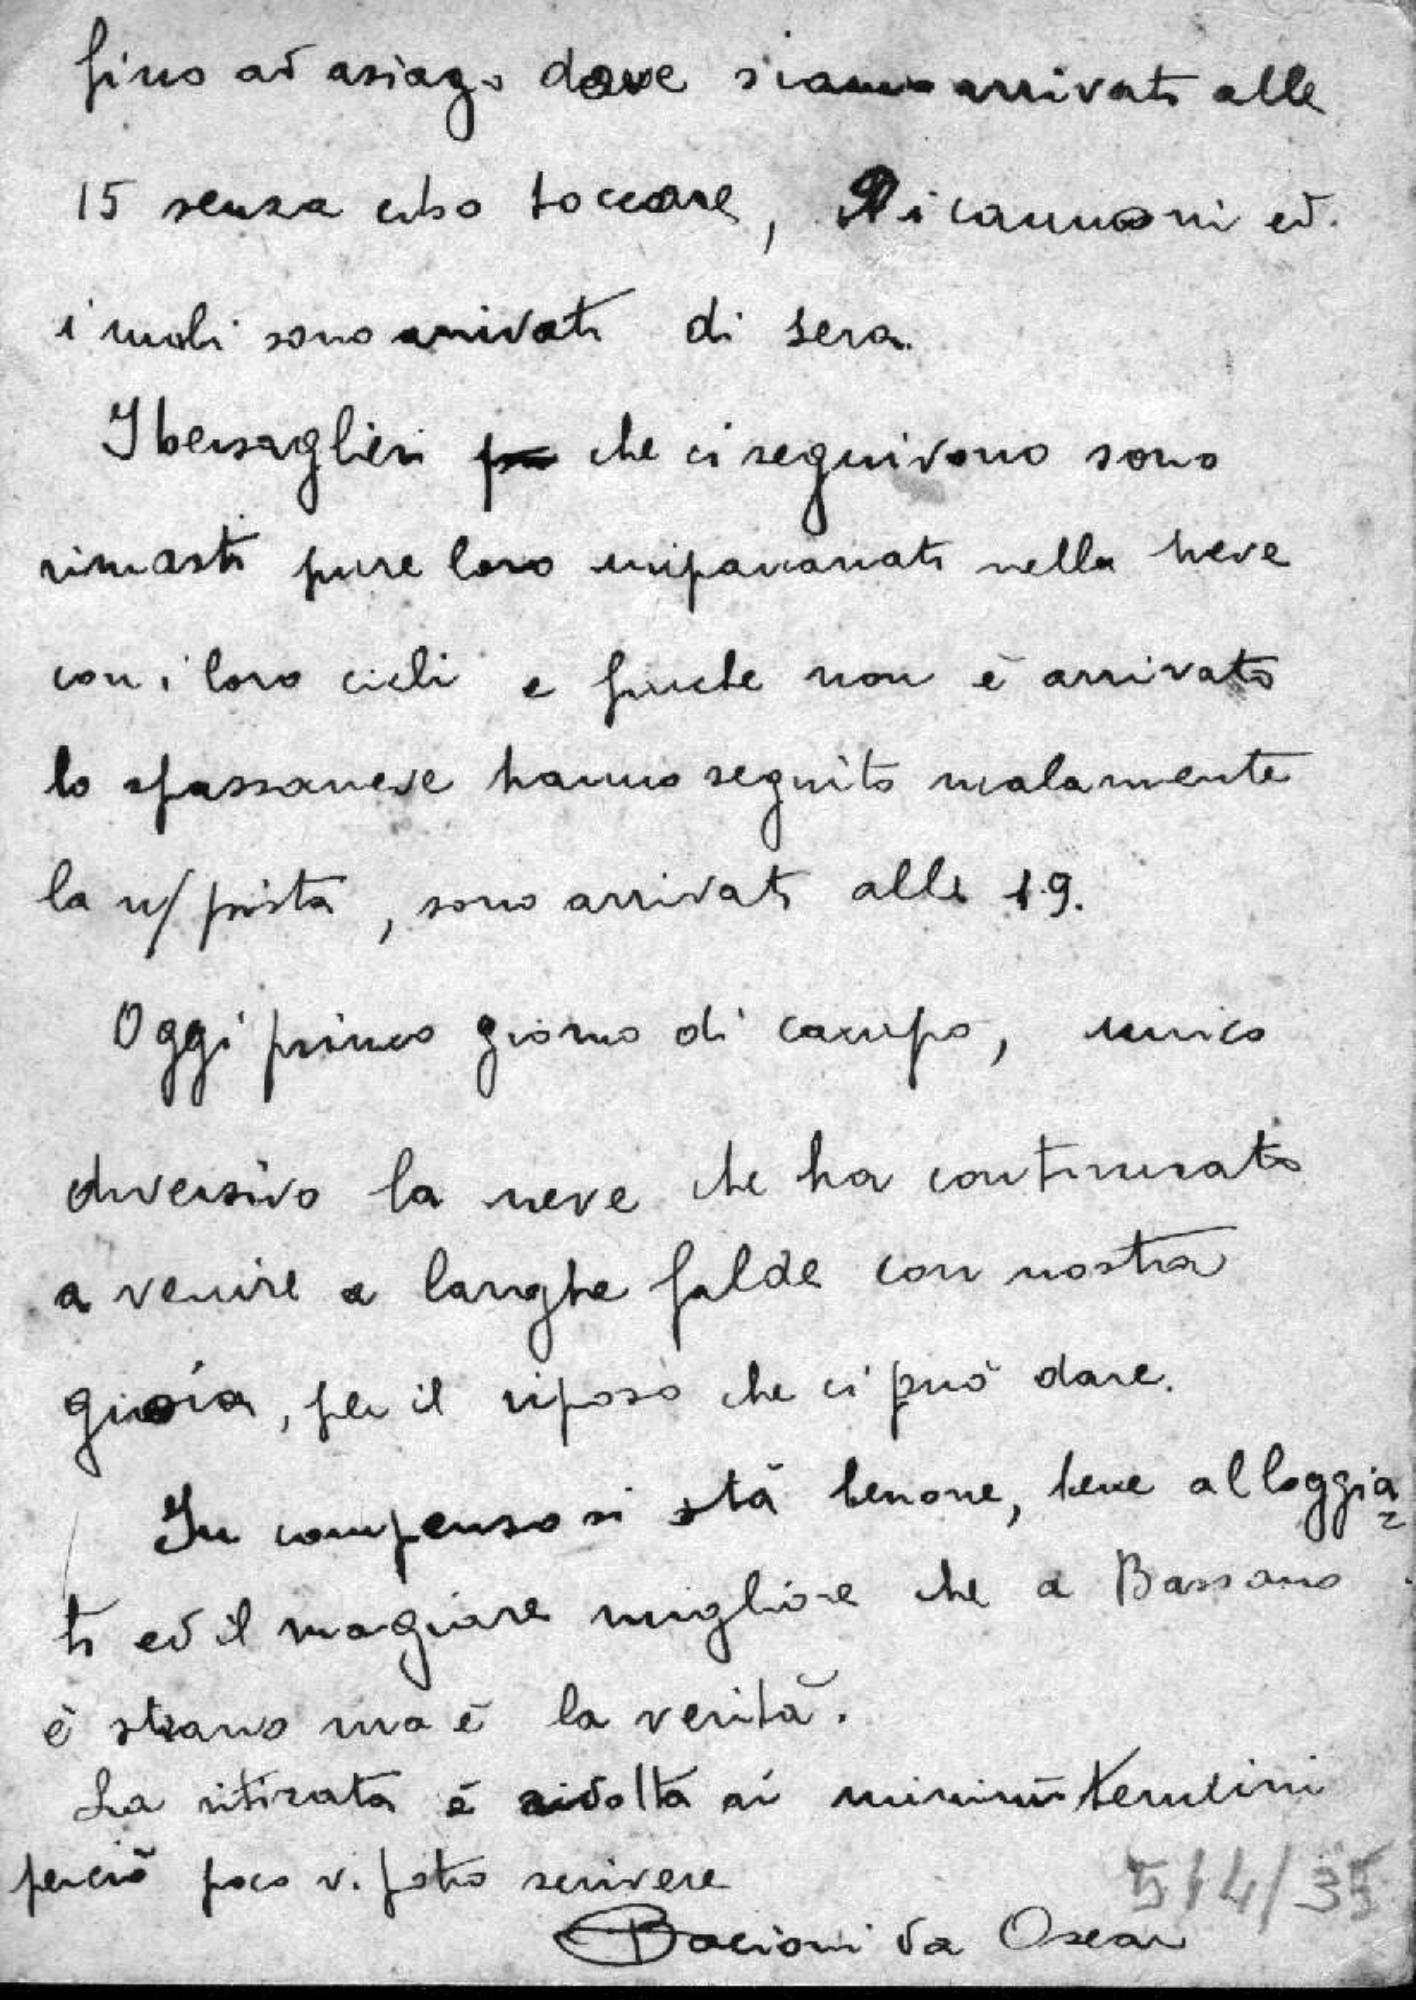 fino ad asiago dove siamo arrivati alle
15 senza cibo toccare, I cannoni ed
i muli sono arrivati di sera.
I bersaglieri che ci seguivano sono
rimasti pure loro impantanati nella neve
con i loro cicli e finche non è arrivato
lo spassaneve hanno seguito malamente
la n/ pista, sono arrivati alle 19.
Oggi primo giorno di campo, unico
diversivo la neve che ha continuato
a venire a larghe falde con nostra
gioia, per il riposo che ci può dare.
In compenso si stà benone, bene alloggia=
ti ed il magiare migliore che a Bassano
è strano ma è la verità.
La ritirata è ridotta ai minimi termini
perciò poco v. potrò scrivere
5/4/35
Bacioni da Oscar